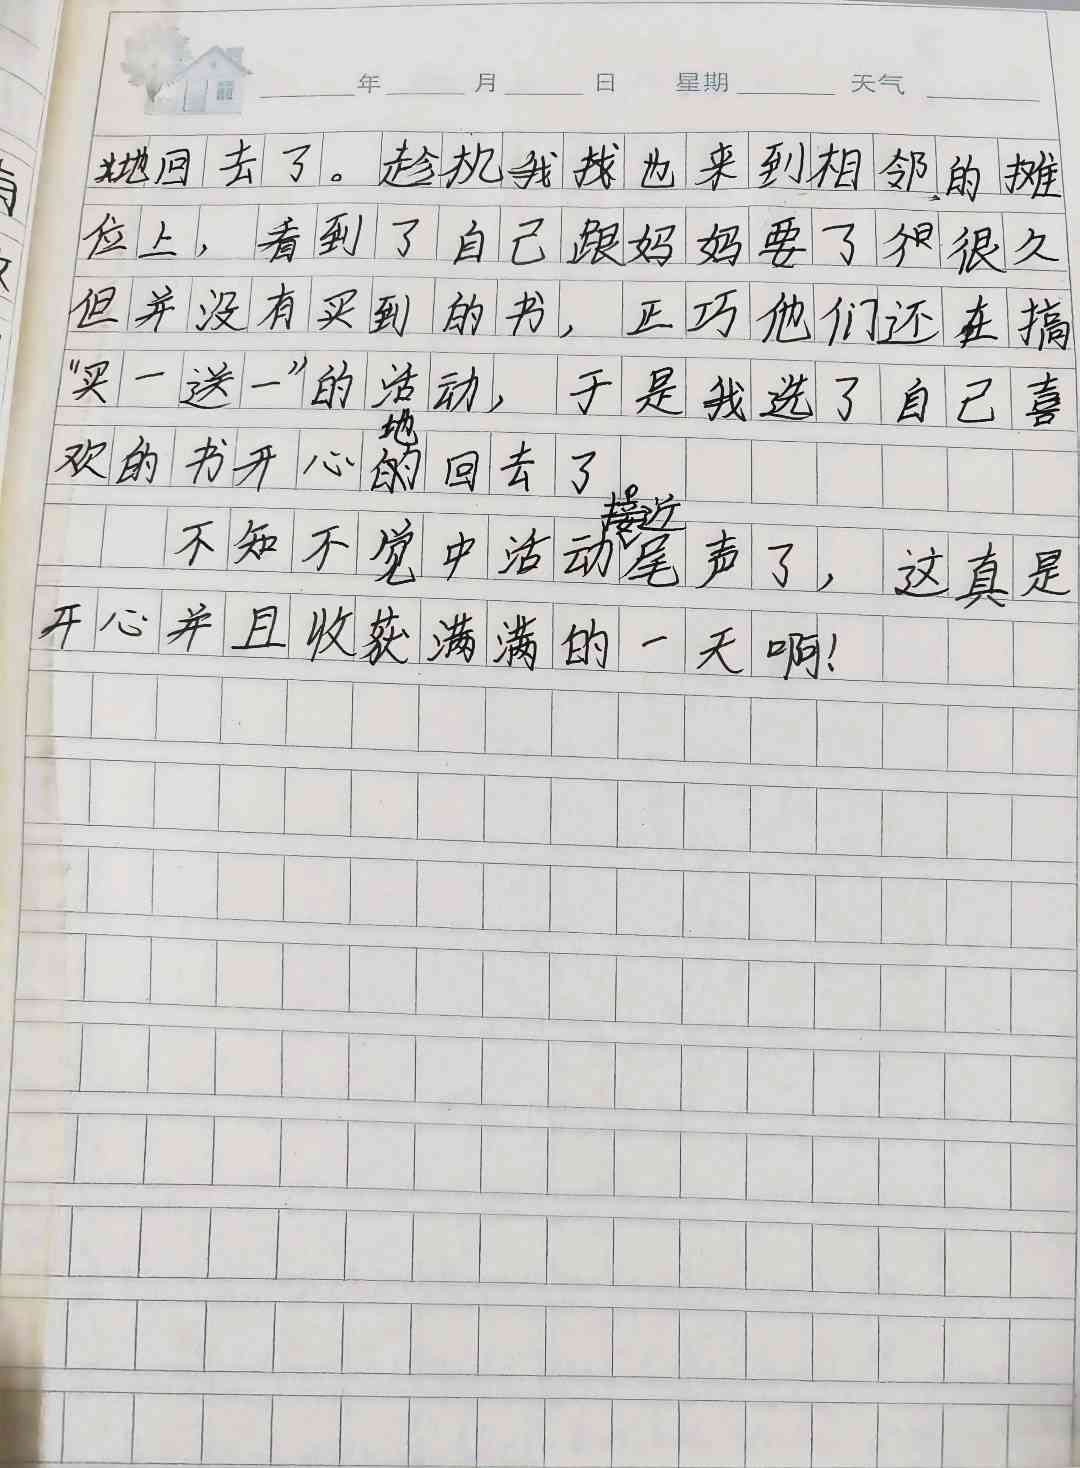 年 月 日 星期 天气
地回去了。趁机我也来到相邻的摊
位上，看到了自己跟妈妈要了很久
但并没有买到的书，正巧他们还在搞
“买一送一”的活动，于是我选了自己喜
欢的书开心地回去了
不知不觉中活动接近尾声了，这真是
开心并且收获满满的一天啊！